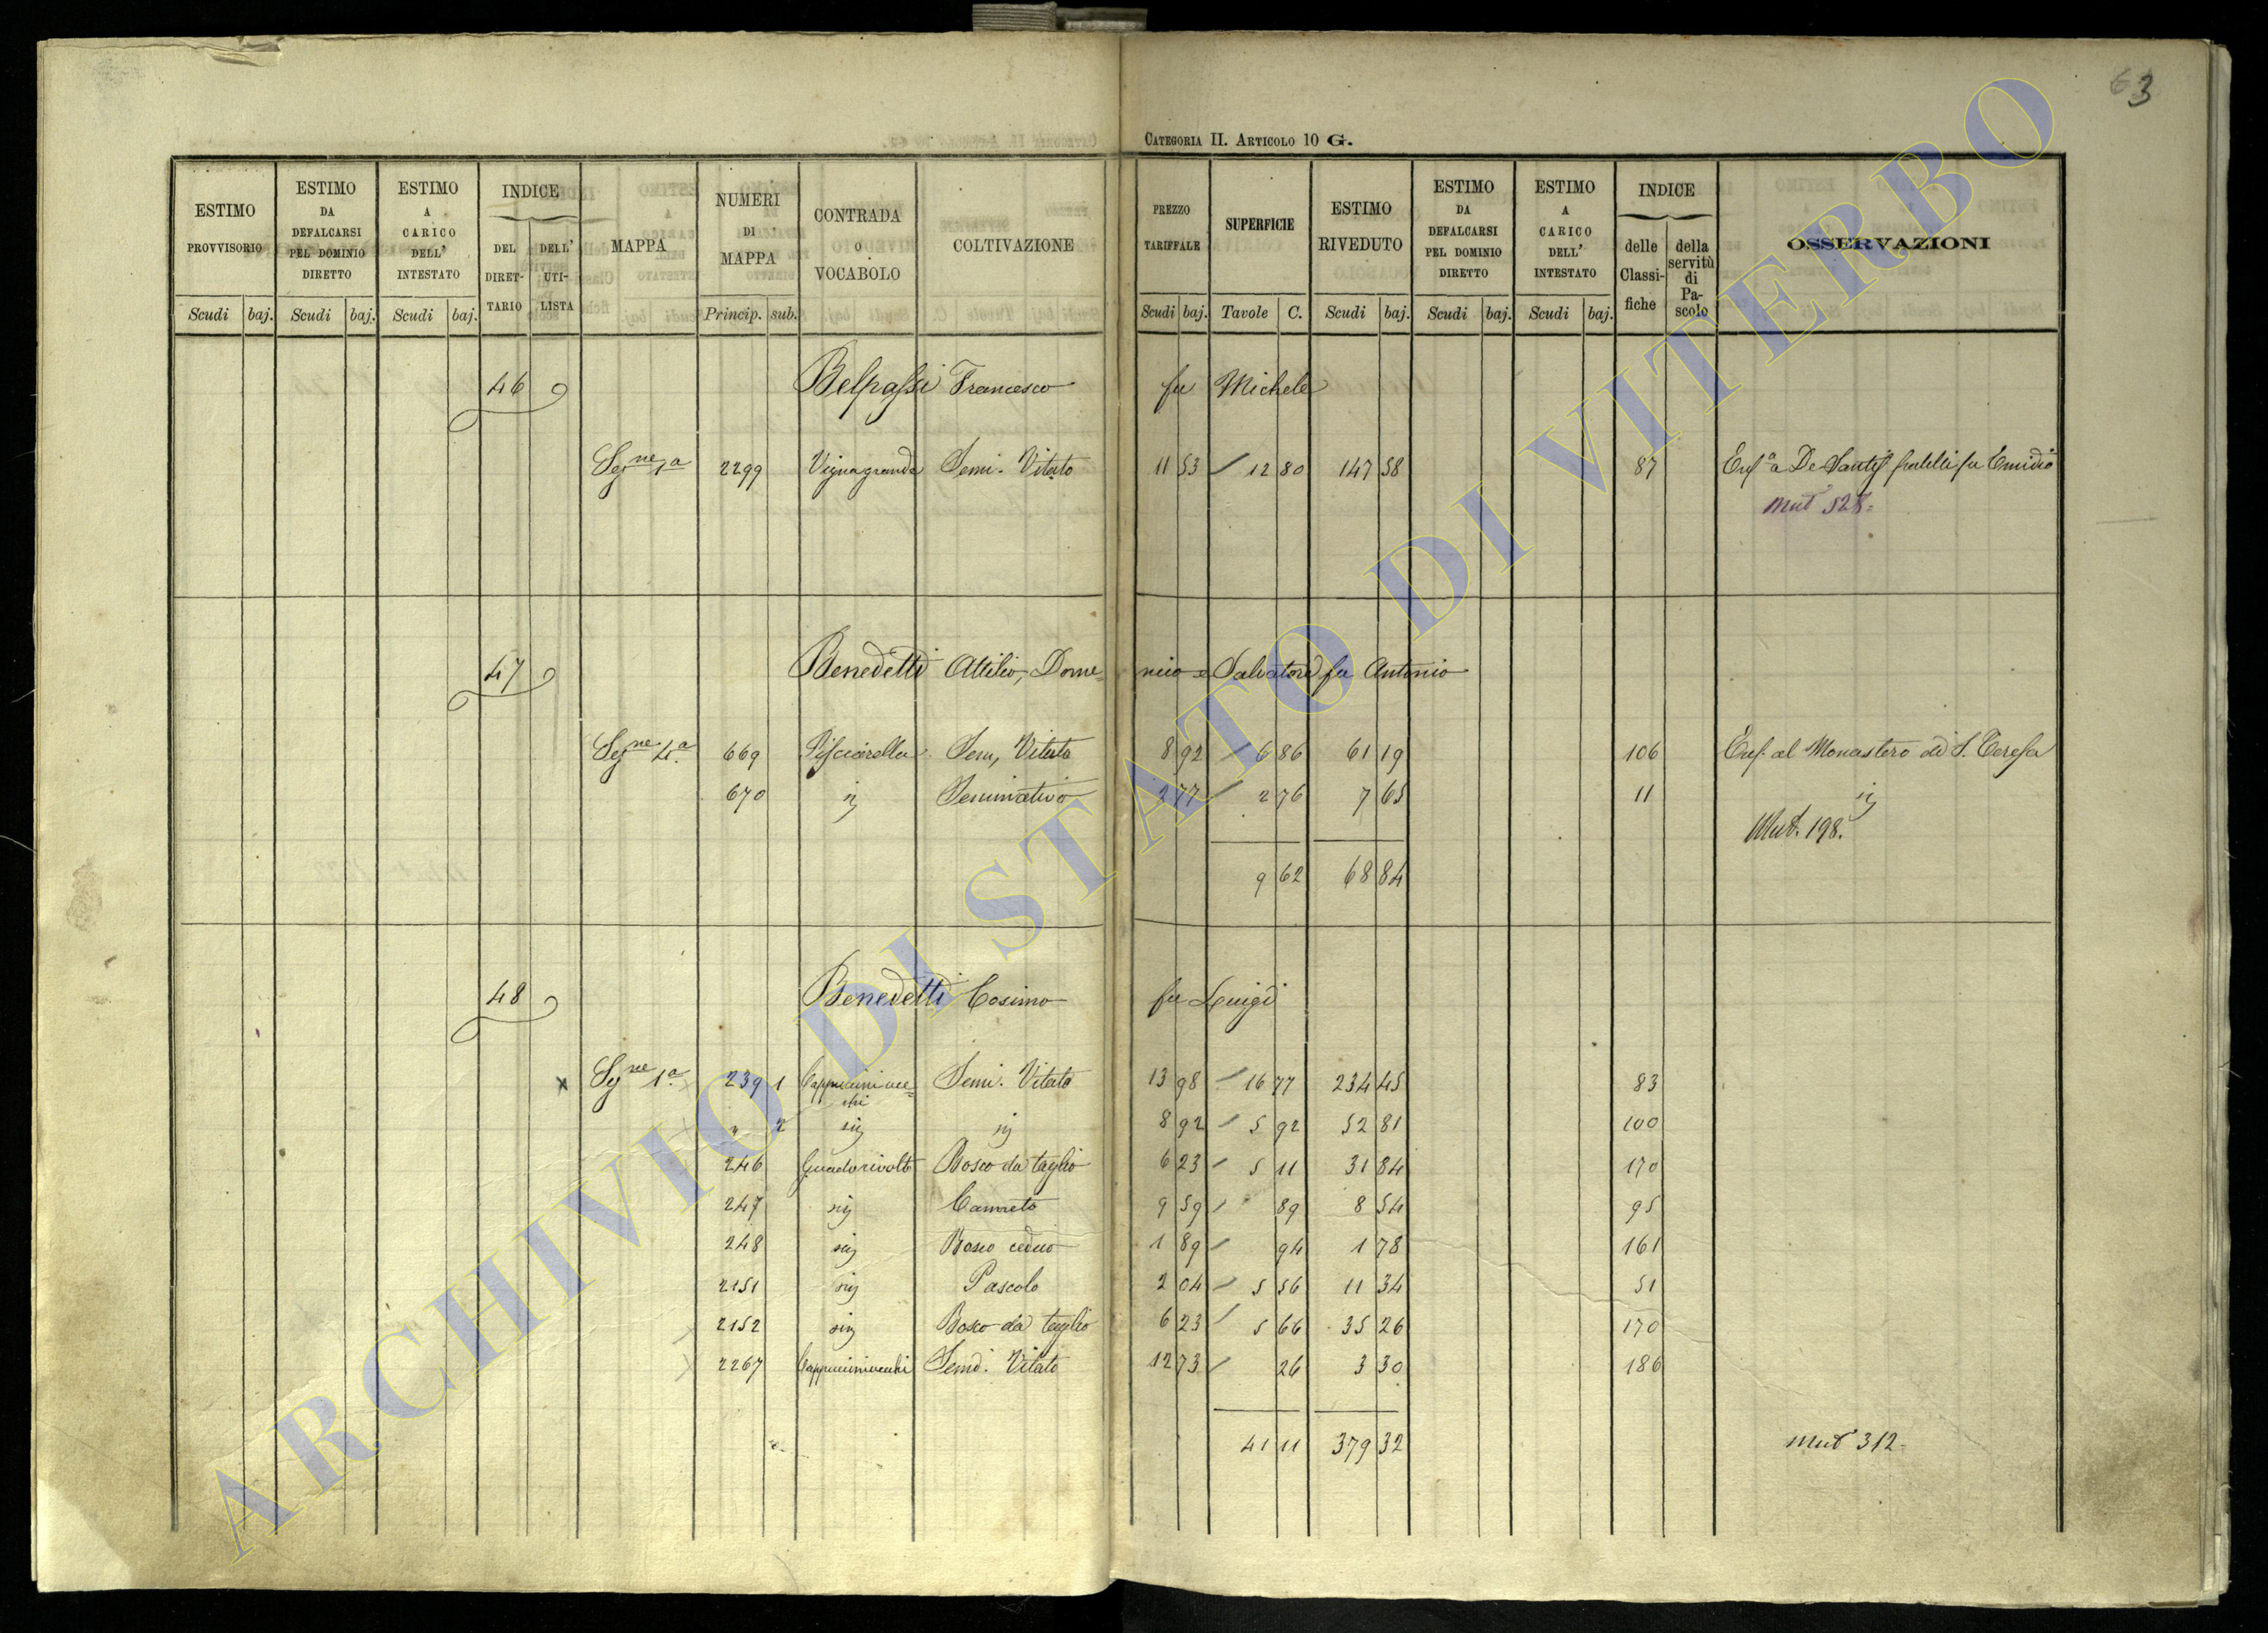 63
CATEGORIA II. ARTICOLO 10 G.
ESTIMO PROVVISORIO | ESTIMO DA DEFALCARSI PEL DOMINIO DIRETTO | ESTIMO A CARICO DELL' INTESTATO | INDICE DEL DIRETTARIO | DELL' UTILISTA | MAPPA | NUMERI DI MAPPA | CONTRADA O VOCABOLO | COLTIVAZIONE | PREZZO TARIFFALE | SUPERFICIE | ESTIMO RIVEDUTO | ESTIMO DA DEFALCARSI PEL DOMINIO DIRETTO | ESTIMO A CARICO DELL' INTESTATO | INDICE delle Classifiche | della servitù di Pascolo | OSSERVAZIONI
Scudi baj. Scudi baj. Scudi baj. Princip. sub. Scudi baj. Tavole C. Scudi baj. Scudi baj. Scudi baj.
46 Belpassi Francesco fu Michele
Segne 1a 2299 Vignagrande Semi. Vitato 11 53 12 80 147 58 87 Enfa a De Santis fratelli fu Emidio
Mut 528
47 Benedetti Attilio, Domenico e Salvatore fu Antonio
Segne 4a 669 Pisciarella Sem. Vitato 8 92 6 86 61 19 106 Enf. al Monastero di S. Teresa
670 Seminativo 2 77 2 76 7 65 11
Mut. 198.
9 62 68 84
48 Benedetti Cosimo fu Luigi
x Segne 1a 239 1 Cappuccini vecchi Semi. Vitato 13 98 16 77 234 45 83
" 2 8 92 5 92 52 81 100
246 Guadorivolto Bosco da taglio 6 23 5 11 31 84 170
247 Canneto 9 59 89 8 54 95
248 Bosco ceduo 1 89 94 1 78 161
2151 Pascolo 2 04 5 56 11 34 51
2152 Bosco da taglio 6 23 5 66 35 26 170
2267 Cappuccini vecchi Semi. Vitato 12 73 26 3 30 186
41 11 379 32 Mut 312
ARCHIVIO DI STATO DI VITERBO